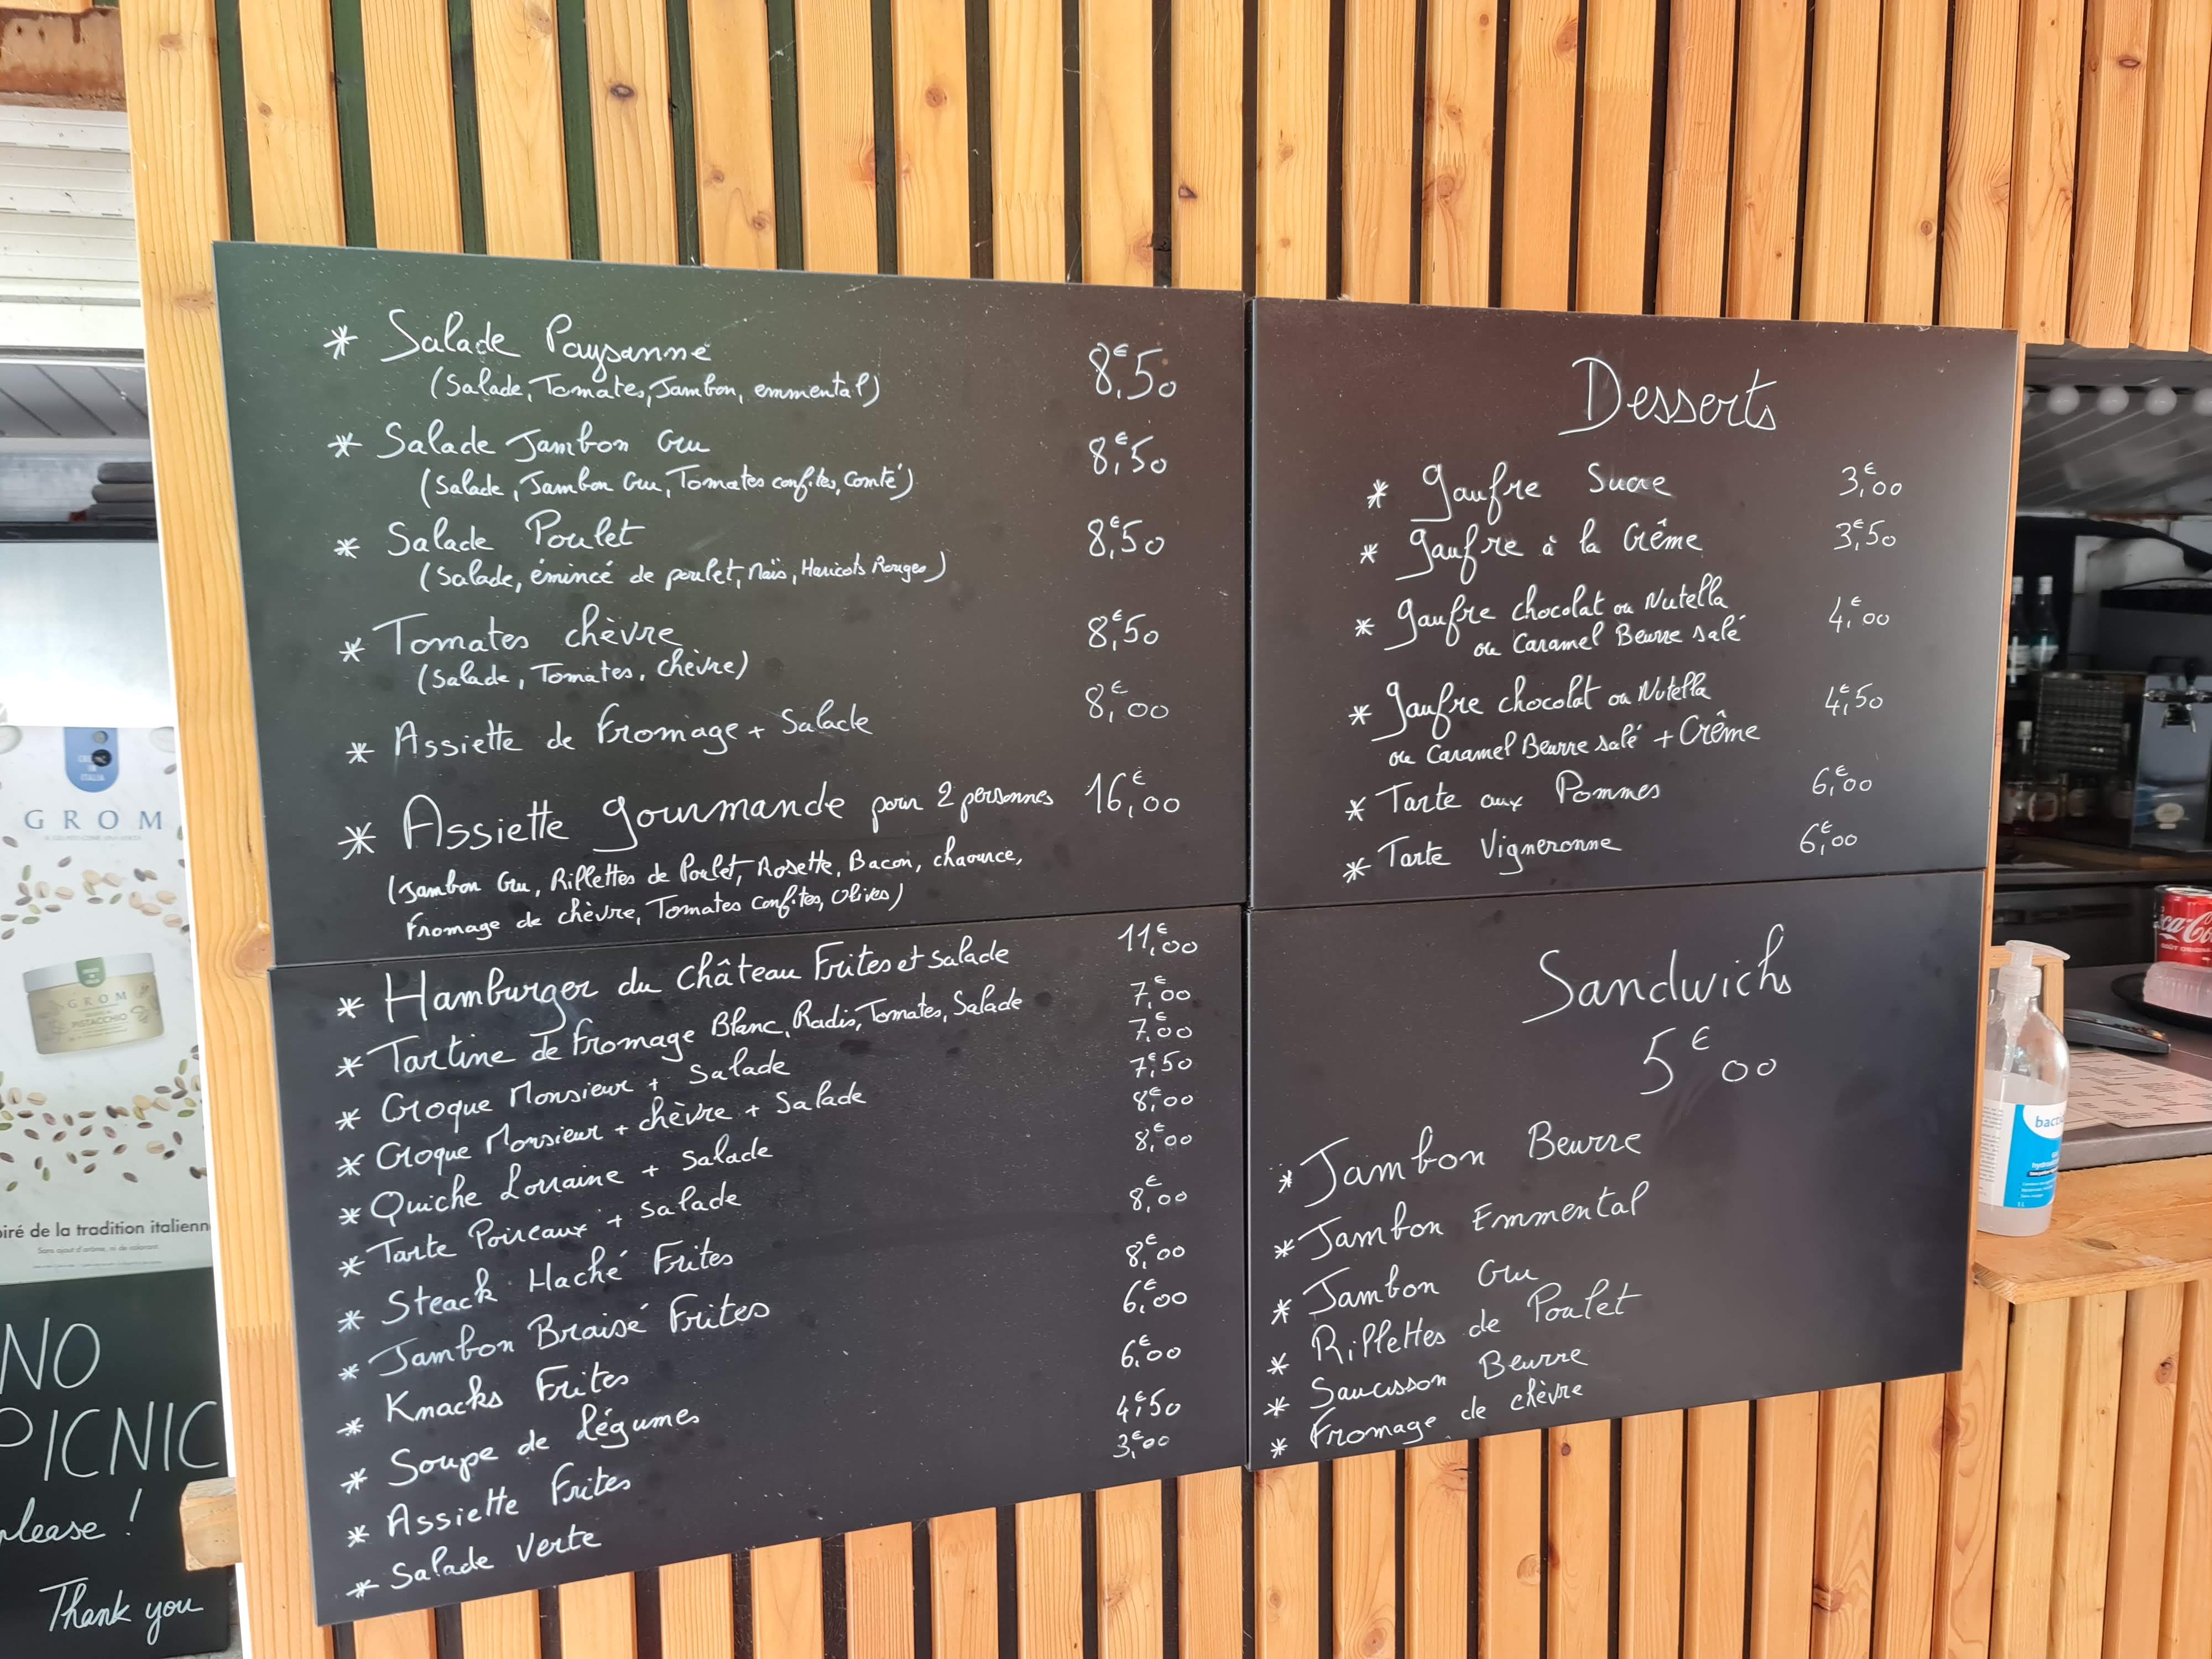 * Salade Paysanne 8,€50
(Salade, Tomates, Jambon, emmental)
* Salade Jambon Cru 8,€50
(Salade, Jambon Cru, Tomates confites, Comté)
* Salade Poulet 8,€50
(Salade, émincé de poulet, Maïs, Haricots Rouges)
* Tomates chèvre 8,€50
(Salade, Tomates, chèvre)
* Assiette de Fromage + Salade 8,€00
* Assiette gourmande pour 2 personnes 16,€00
(Jambon Cru, Rillettes de Poulet, Rosette, Bacon, chaource,
Fromage de chèvre, Tomates confites, Olives)
* Hamburger du Château Frites et salade 11,€00
* Tartine de fromage Blanc, Radis, Tomates, Salade 7,€00
* Croque Monsieur + Salade 7,€00
* Croque Monsieur + chèvre + Salade 7,€50
* Quiche Lorraine + Salade 8,€00
* Tarte Poireaux + Salade 8,€00
* Steack Haché Frites 8,€00
* Jambon Braisé Frites 8,€00
* Knacks Frites 6,€00
* Soupe de légumes 6,€00
* Assiette Frites 4,€50
* Salade Verte 3,€00
Desserts
* Gaufre Sucre 3,€00
* Gaufre à la Crême 3,€50
* Gaufre chocolat ou Nutella
ou Caramel Beurre salé 4,€00
* Gaufre chocolat ou Nutella
ou Caramel Beurre salé + Crême 4,€50
* Tarte aux Pommes 6,€00
* Tarte Vigneronne 6,€00
Sandwichs
5€00
* Jambon Beurre
* Jambon Emmental
* Jambon Cru
* Rillettes de Poulet
* Saucisson Beurre
* Fromage de chèvre
GROM
GROM
PISTACCHIO
iré de la tradition italienn
Sans ajout d'arôme, ni de colorant
NO
PICNIC
please !
Thank you